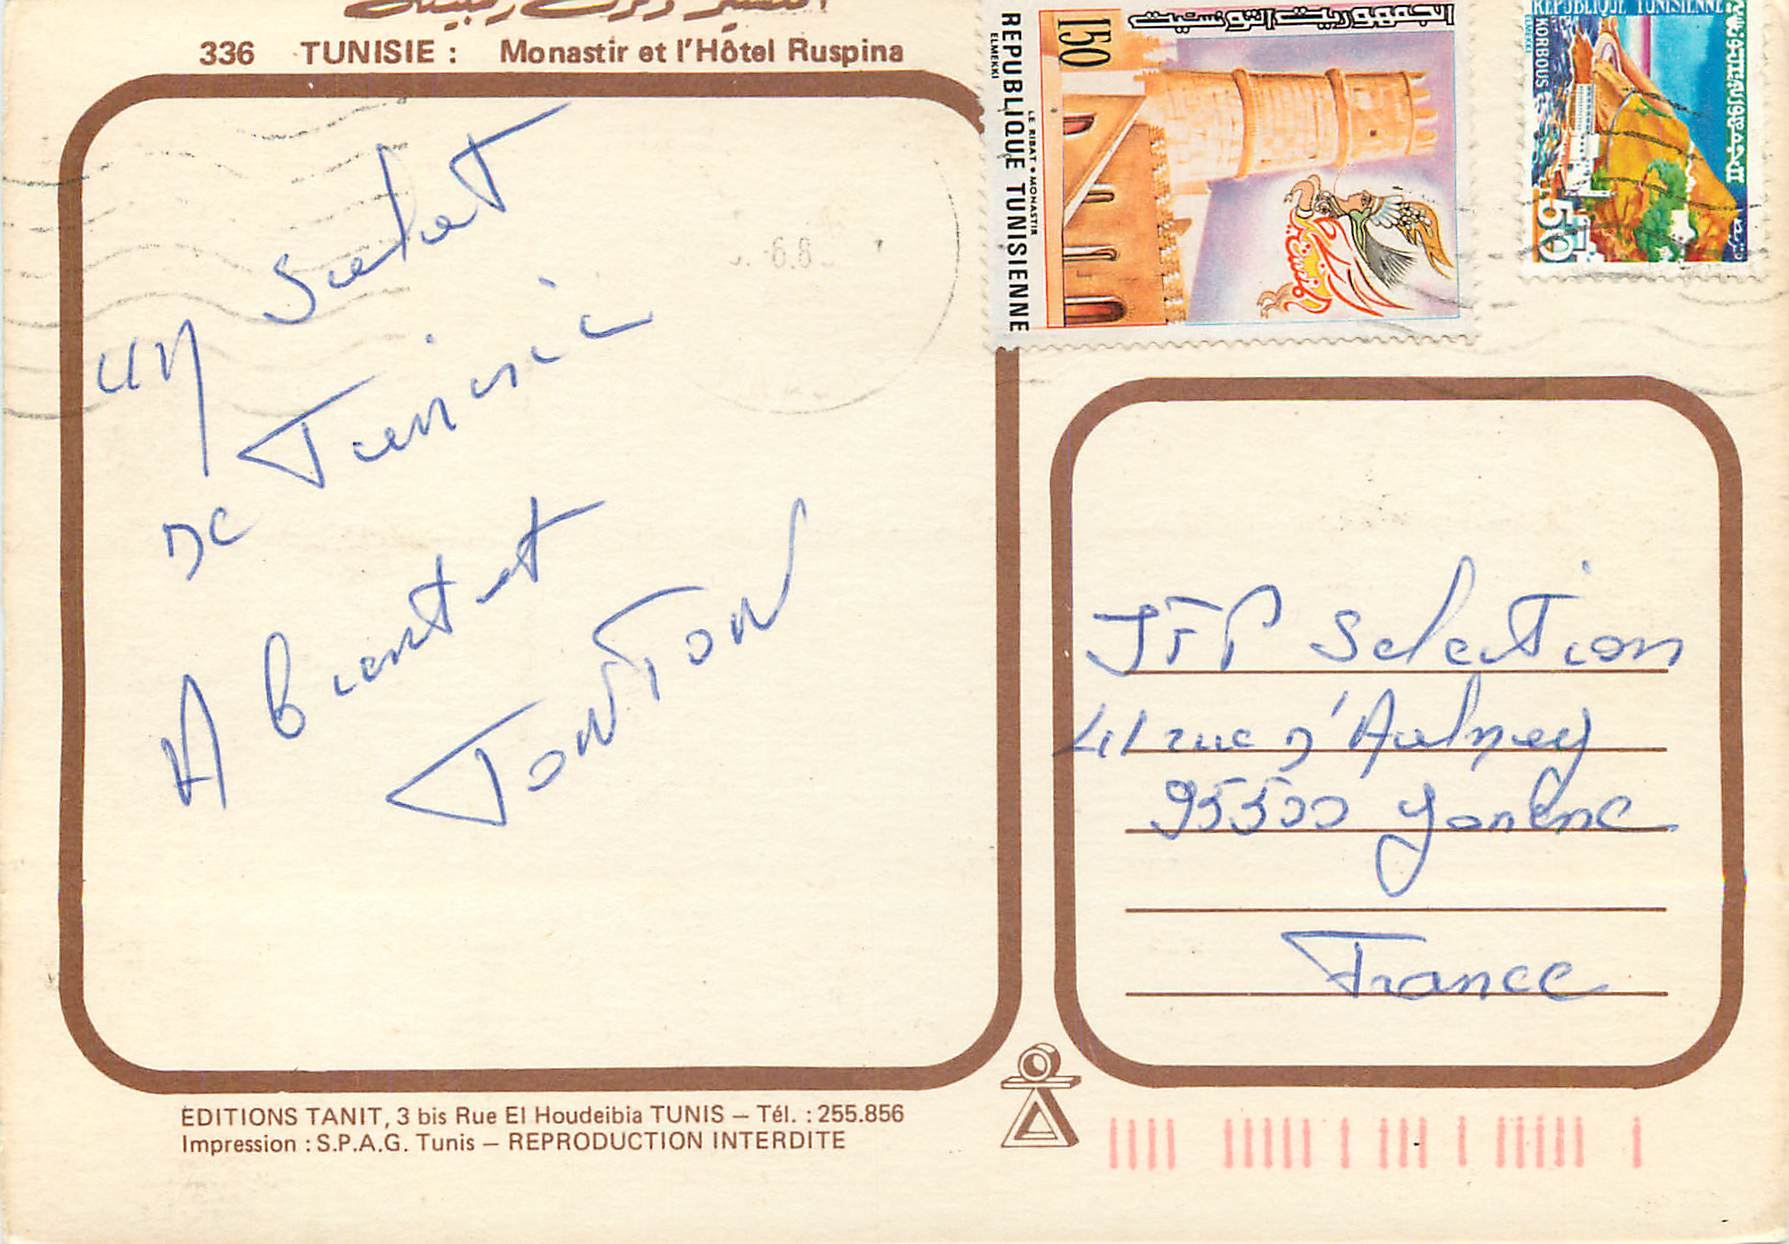 336 TUNISIE : Monastir et l'Hôtel Ruspina
الجمهورية التونسية
150
LE RIBAT • MONASTIR
REPUBLIQUE TUNISIENNE
ELMEKKI
REPUBLIQUE TUNISIENNE
الجمهورية التونسية
KORBOUS
50
un salut
de Tunisie
A bientot
TONTON
JFP Selection
41 rue d'Aulnay
95500 Gonesse
France
EDITIONS TANIT, 3 bis Rue El Houdeibia TUNIS – Tél. : 255.856
Impression : S.P.A.G. Tunis – REPRODUCTION INTERDITE